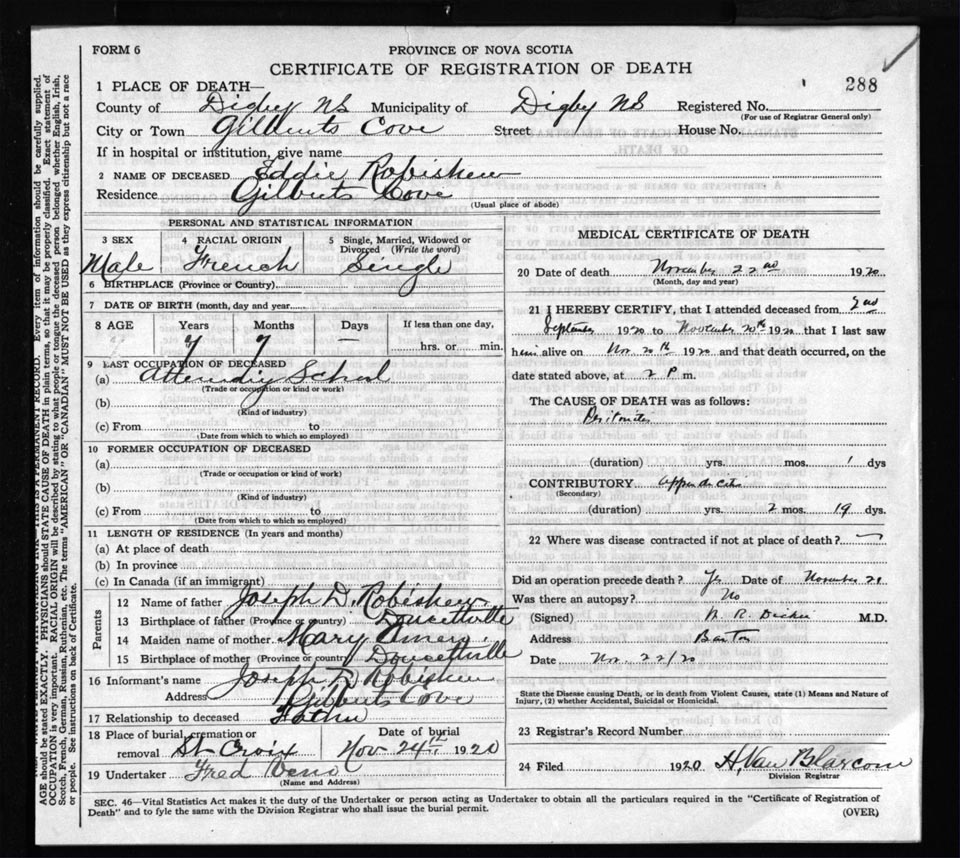 FORM 6
PROVINCE OF NOVA SCOTIA
CERTIFICATE OF REGISTRATION OF DEATH
288
1 PLACE OF DEATH—
County of Digby NS Municipality of Digby NS Registered No.
(For use of Registrar General only)
City or Town Gilberts Cove Street House No.
If in hospital or institution, give name
2 NAME OF DECEASED Eddie Robishew
Residence Gilberts Cove
(Usual place of abode)
PERSONAL AND STATISTICAL INFORMATION
3 SEX 4 RACIAL ORIGIN 5 Single, Married, Widowed or Divorced (Write the word)
Male French Single
6 BIRTHPLACE (Province or Country)
7 DATE OF BIRTH (month, day and year)
8 AGE Years Months Days If less than one day,
7 7 — hrs. or min.
9 LAST OCCUPATION OF DECEASED
(a) Attending School
(Trade or occupation or kind of work)
(b)
(Kind of industry)
(c) From to
(Date from which to which so employed)
10 FORMER OCCUPATION OF DECEASED
(a)
(Trade or occupation or kind of work)
(b)
(Kind of industry)
(c) From to
(Date from which to which so employed)
11 LENGTH OF RESIDENCE (In years and months)
(a) At place of death
(b) In province
(c) In Canada (if an immigrant)
Parents
12 Name of father Joseph D. Robishew
13 Birthplace of father (Province or country) Doucetville
14 Maiden name of mother Mary
15 Birthplace of mother (Province or country) Doucettville
16 Informant's name Joseph D. Robishew
Address Gilberts Cove
17 Relationship to deceased Father
18 Place of burial, cremation or removal St Croix
Date of burial Nov 24th 1920
19 Undertaker Fred
(Name and Address)
MEDICAL CERTIFICATE OF DEATH
20 Date of death November 22nd 1920
(Month, day and year)
21 I HEREBY CERTIFY, that I attended deceased from 2nd
September 1920 to November 20th 1920 that I last saw
him alive on Nov. 20th 1920 and that death occurred, on the
date stated above, at 2 P.m.
The CAUSE OF DEATH was as follows:
Peritonitis
(duration) yrs. mos. 1 dys
CONTRIBUTORY Appendicitis
(Secondary)
(duration) yrs. 2 mos. 19 dys.
22 Where was disease contracted if not at place of death?
Did an operation precede death? Yes Date of November 21
Was there an autopsy? No
(Signed) M.D.
Address Barton
Date Nov. 22/20
State the Disease causing Death, or in death from Violent Causes, state (1) Means and Nature of
Injury, (2) whether Accidental, Suicidal or Homicidal.
23 Registrar's Record Number
24 Filed 1920 H. Van Blarcom
Division Registrar
SEC. 46—Vital Statistics Act makes it the duty of the Undertaker or person acting as Undertaker to obtain all the particulars required in the "Certificate of Registration of
Death" and to fyle the same with the Division Registrar who shall issue the burial permit.
(OVER)
AGE should be stated EXACTLY. PHYSICIANS should STATE CAUSE OF DEATH in plain terms, so that it may be properly classified. Exact statement of
OCCUPATION is very important. RACIAL ORIGIN will be described by stating to what people or tongue the deceased person belonged whether English, Irish,
Scotch, French, German, Russian, Ruthenian, etc. The terms "AMERICAN" OR "CANADIAN" MUST NOT BE USED as they express citizenship but not a race
or people. See instructions on back of Certificate.